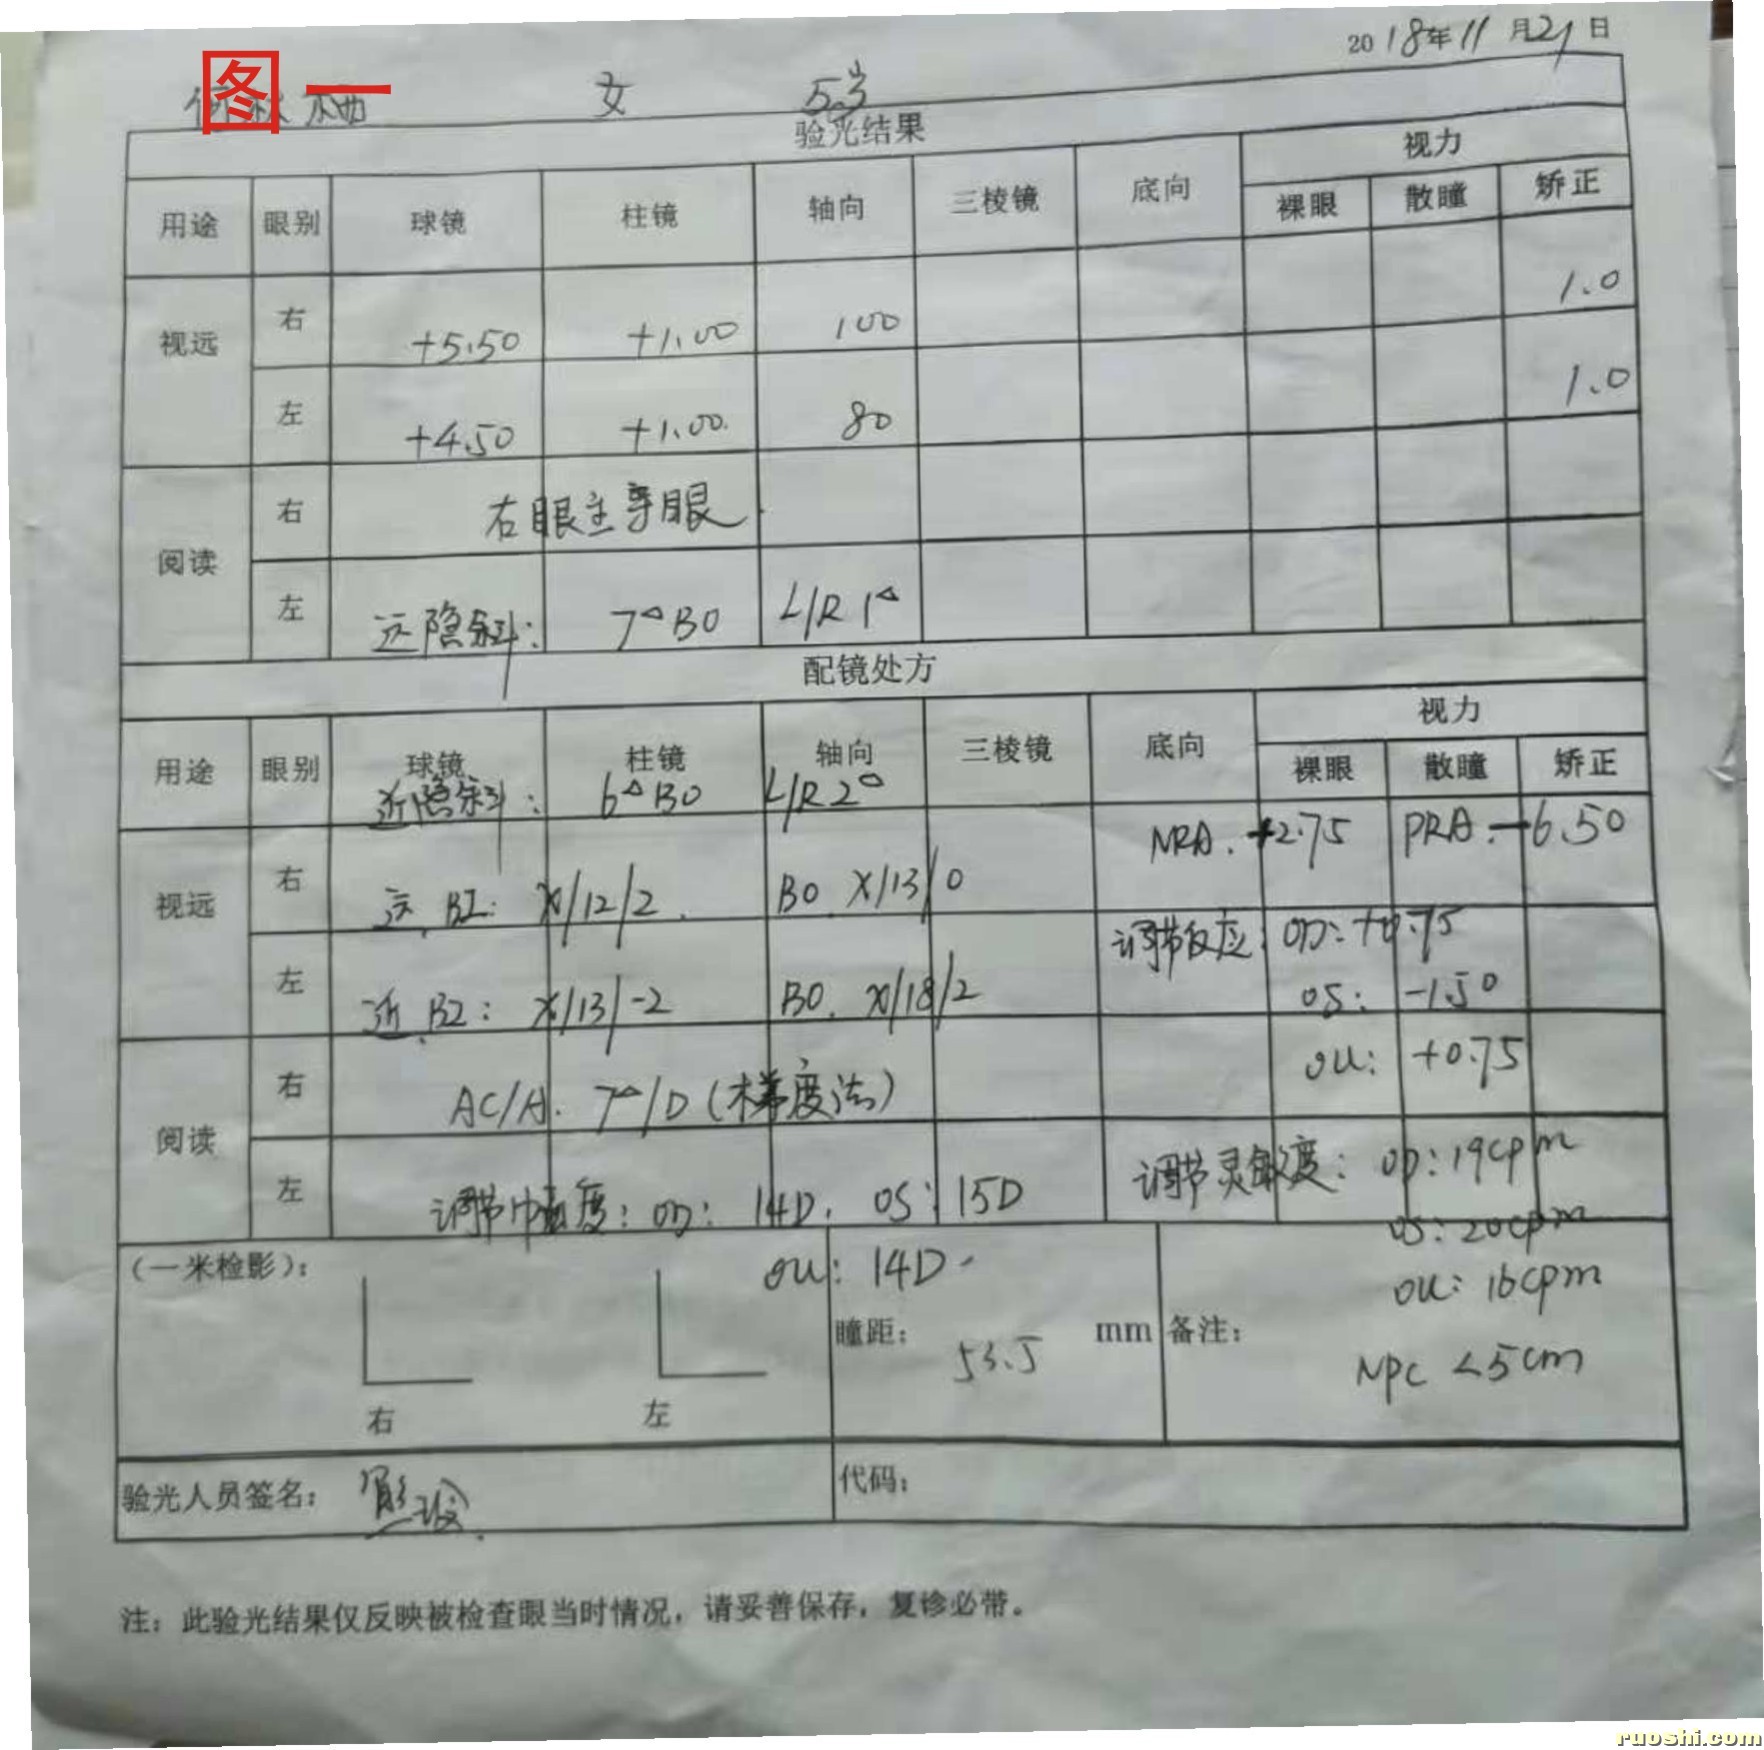 2018年11月21日
图一
女 5岁
验光结果
用途 眼别 球镜 柱镜 轴向 三棱镜 底向 视力
裸眼 散瞳 矫正
视远 右 +5.50 +1.00 100 1.0
左 +4.50 +1.00. 80 1.0
阅读 右 右眼主导眼.
左 远隐斜: 7△BO L/R 1△
配镜处方
用途 眼别 球镜 柱镜 轴向 三棱镜 底向 视力
裸眼 散瞳 矫正
近隐斜: 6△BO L/R 2△
NRA. +2.75 PRA. -6.50
视远 右 远.BI: X/12/2. BO. X/13/0
调节反应: OD: +0.75
左 近.BI: X/13/-2 BO. X/18/2
OS: -1.50
OU: +0.75
阅读 右 AC/A. 7△/D(梯度法)
左 调节幅度: OD: 14D. OS: 15D
调节灵敏度: OD: 19cpm
OS: 20cpm
(一米检影): OU: 14D.
OU: 16cpm
瞳距: 53.5 mm 备注:
NPC <5cm
右 左
验光人员签名: 代码:
注: 此验光结果仅反映被检查眼当时情况, 请妥善保存, 复诊必带。
ruoshi.com